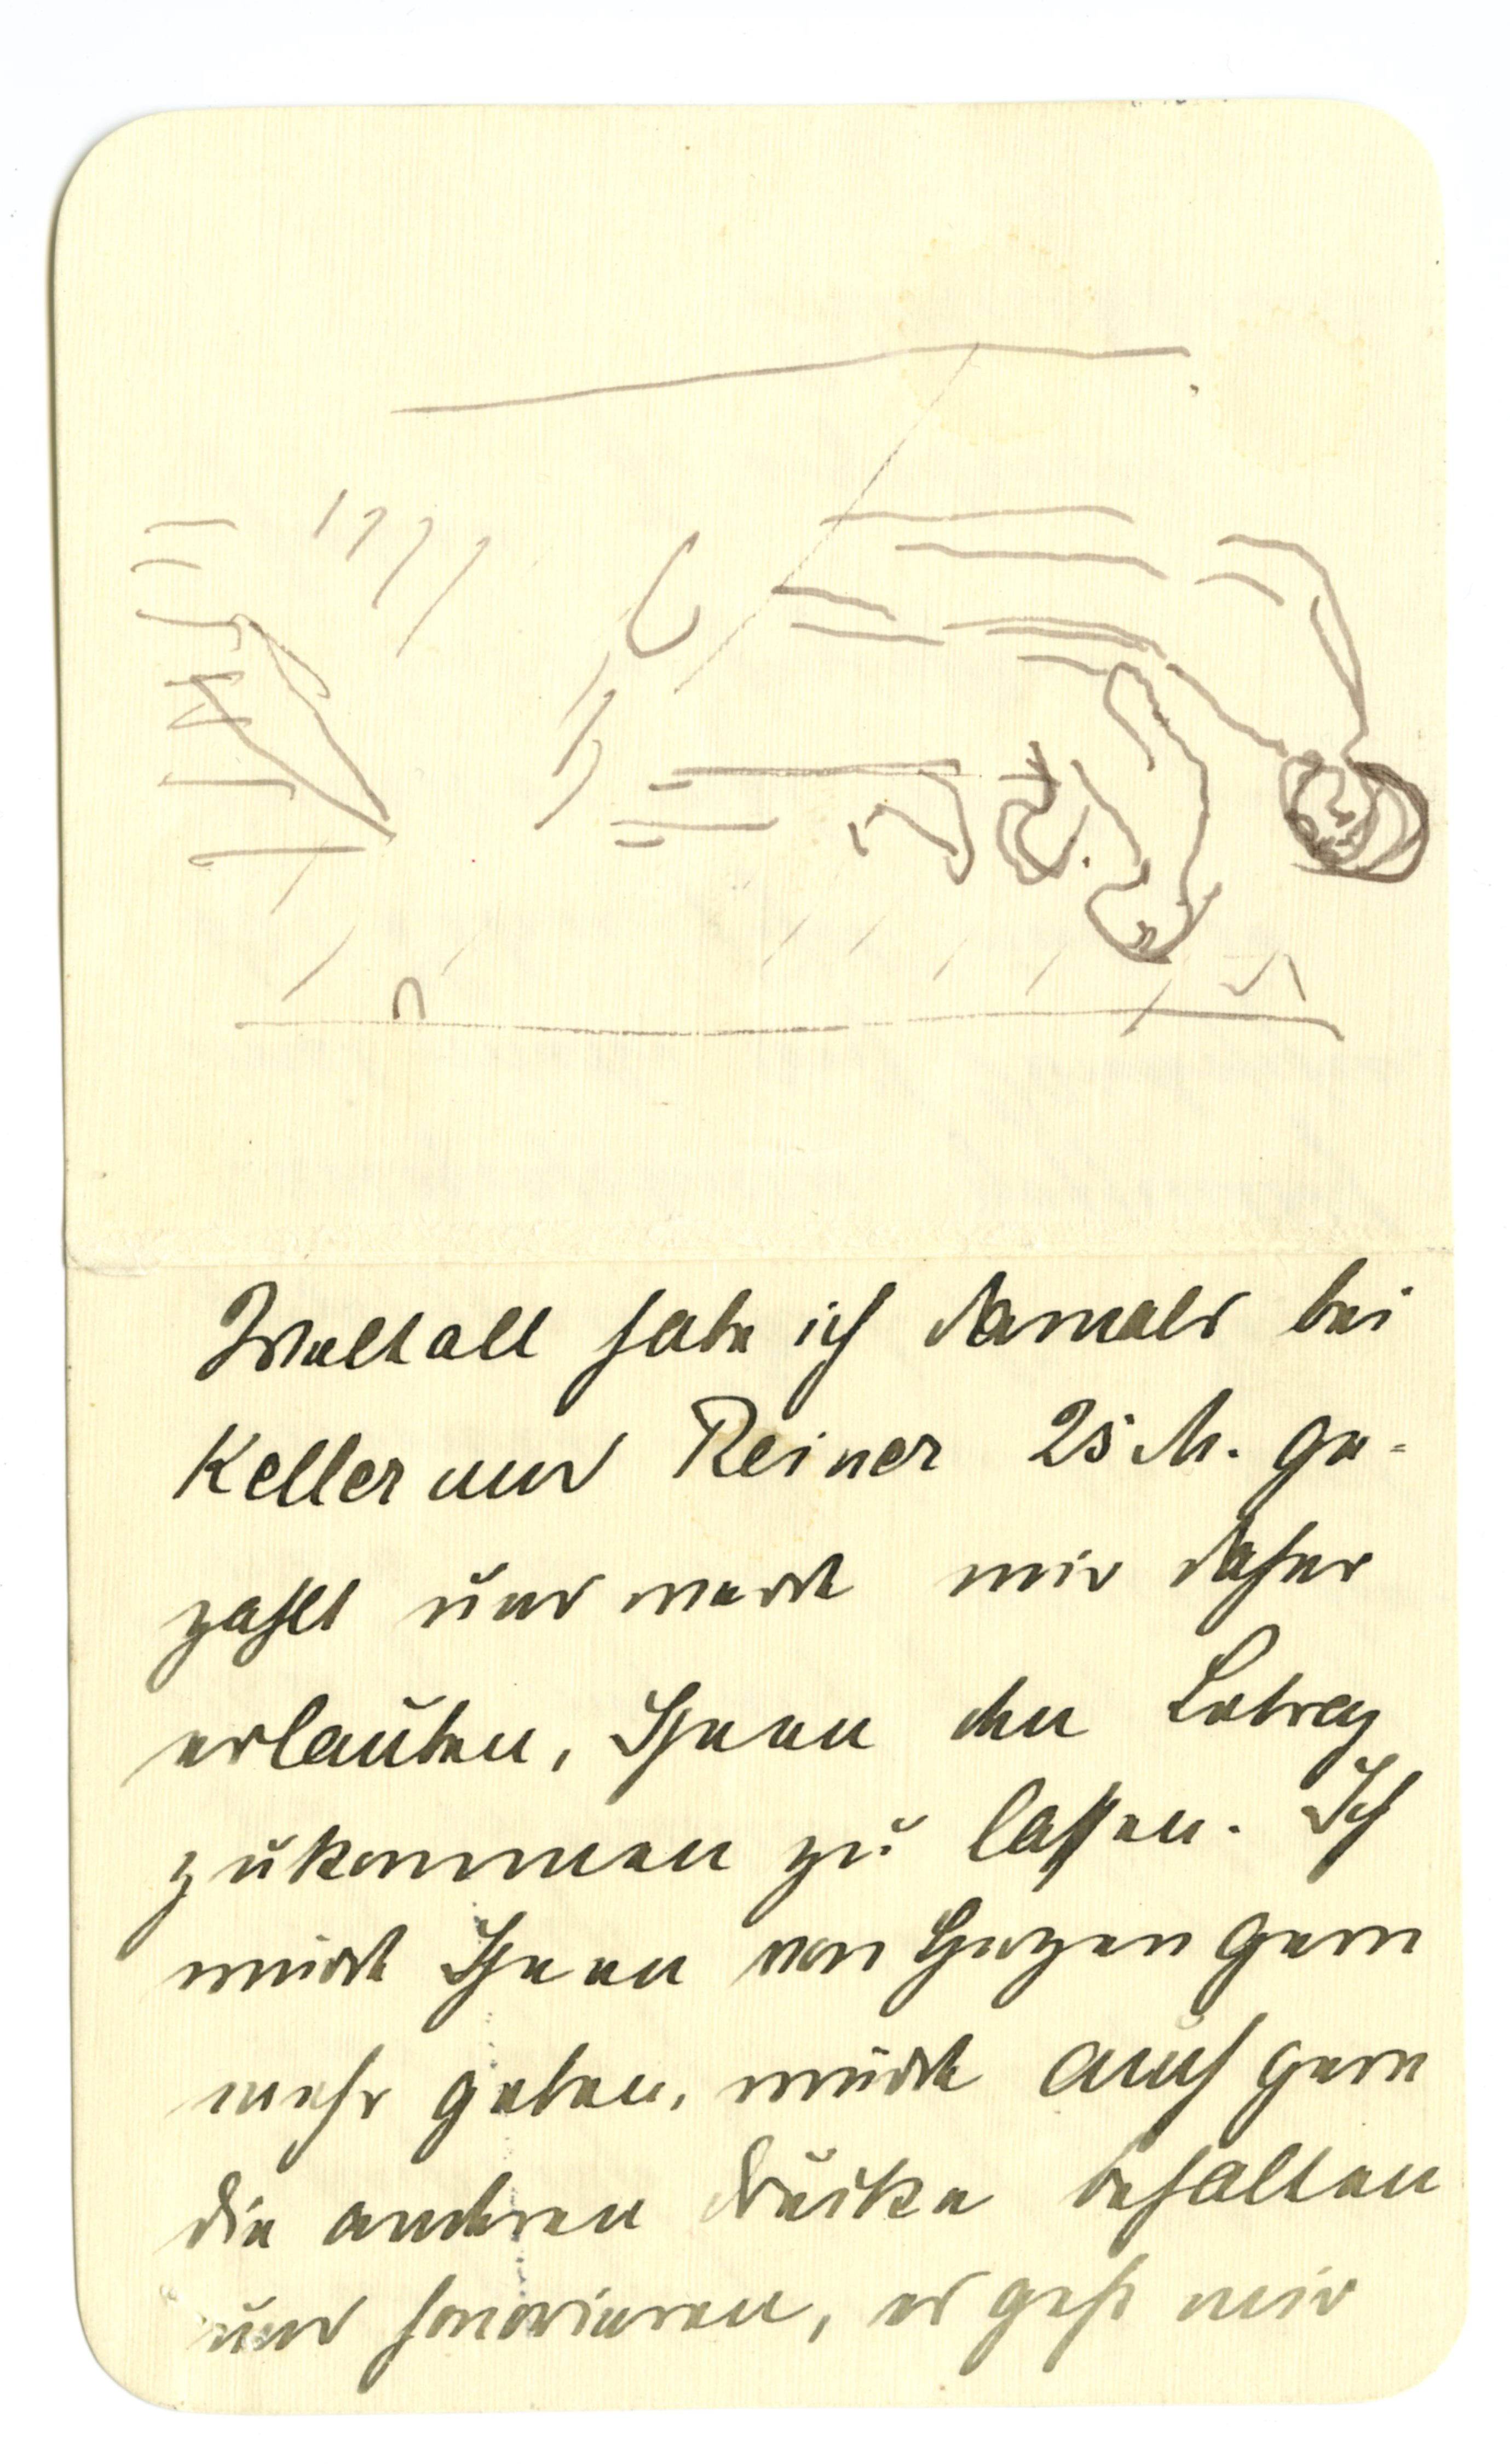 Weltall habe ich damals bei
Keller und Reiner 25 M. ge-
zahlt und werde mir daher
erlauben, Ihnen den Betrag
zukommen zu lassen. Ich
würde Ihnen von Herzen gern
mehr geben, würde auch gern
die anderen Stücke behalten
und honorieren, es geht mir